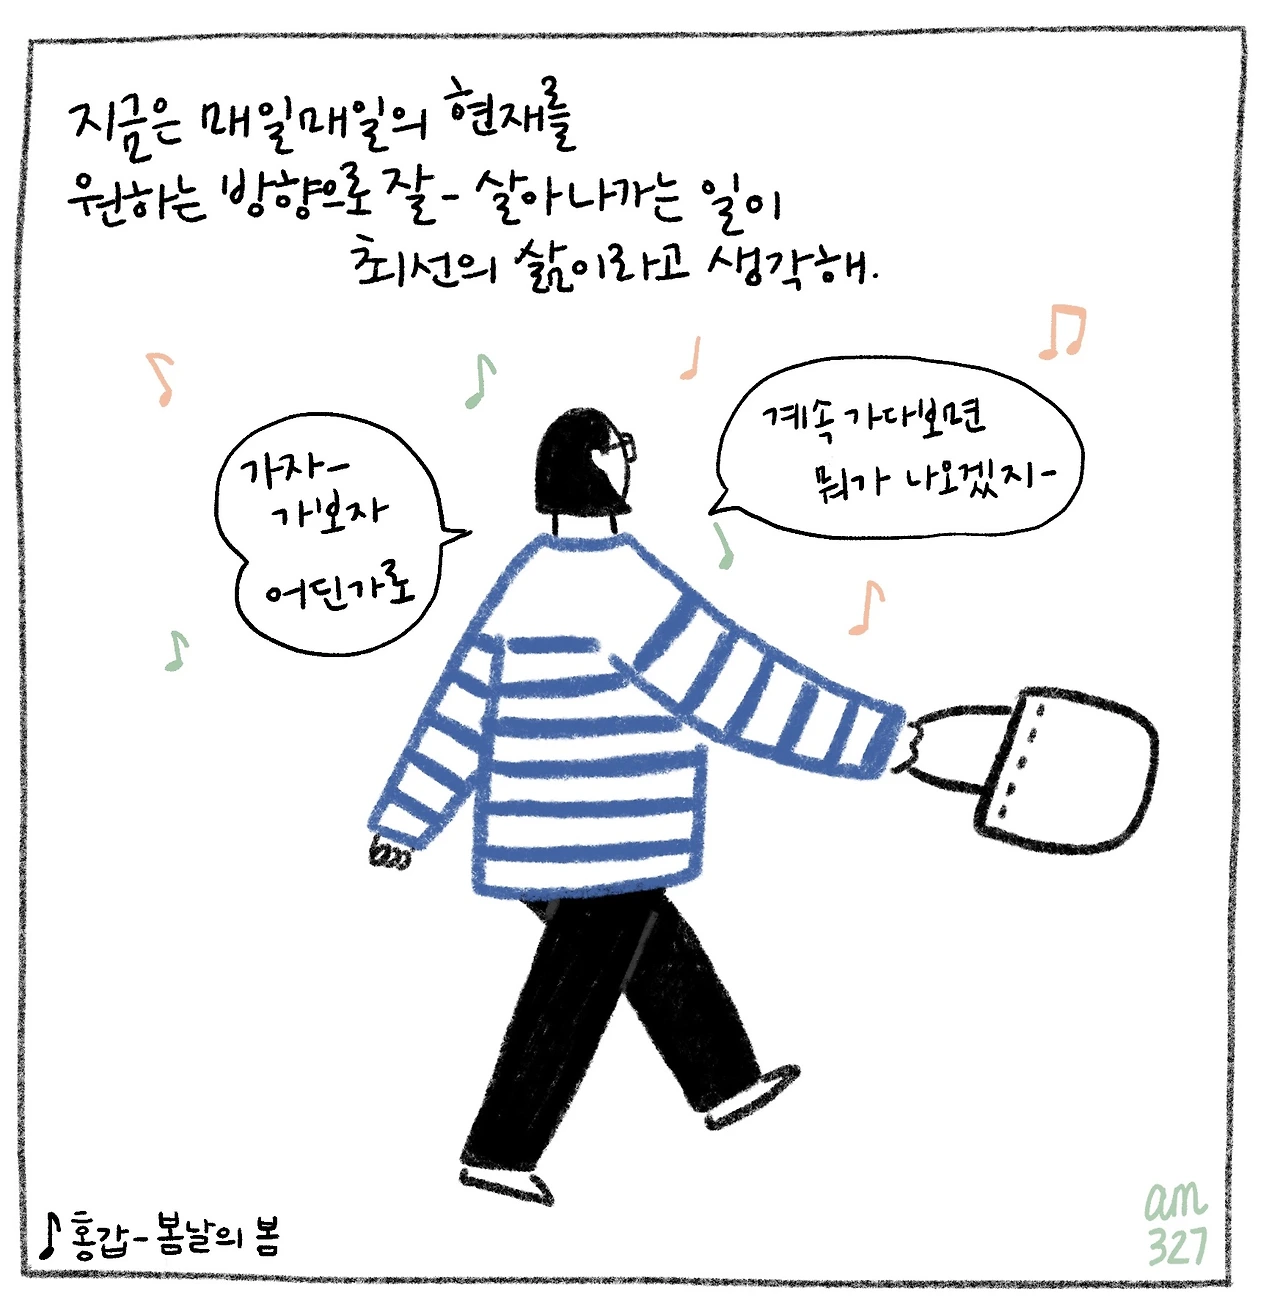 지금은 매일매일의 현재를
원하는 방향으로 잘- 살아나가는 일이
최선의 삶이라고 생각해.
가자-
가보자
어딘가로
계속 가다보면
뭐가 나오겠지-
♪ 홍갑 - 봄날의 봄
am
327